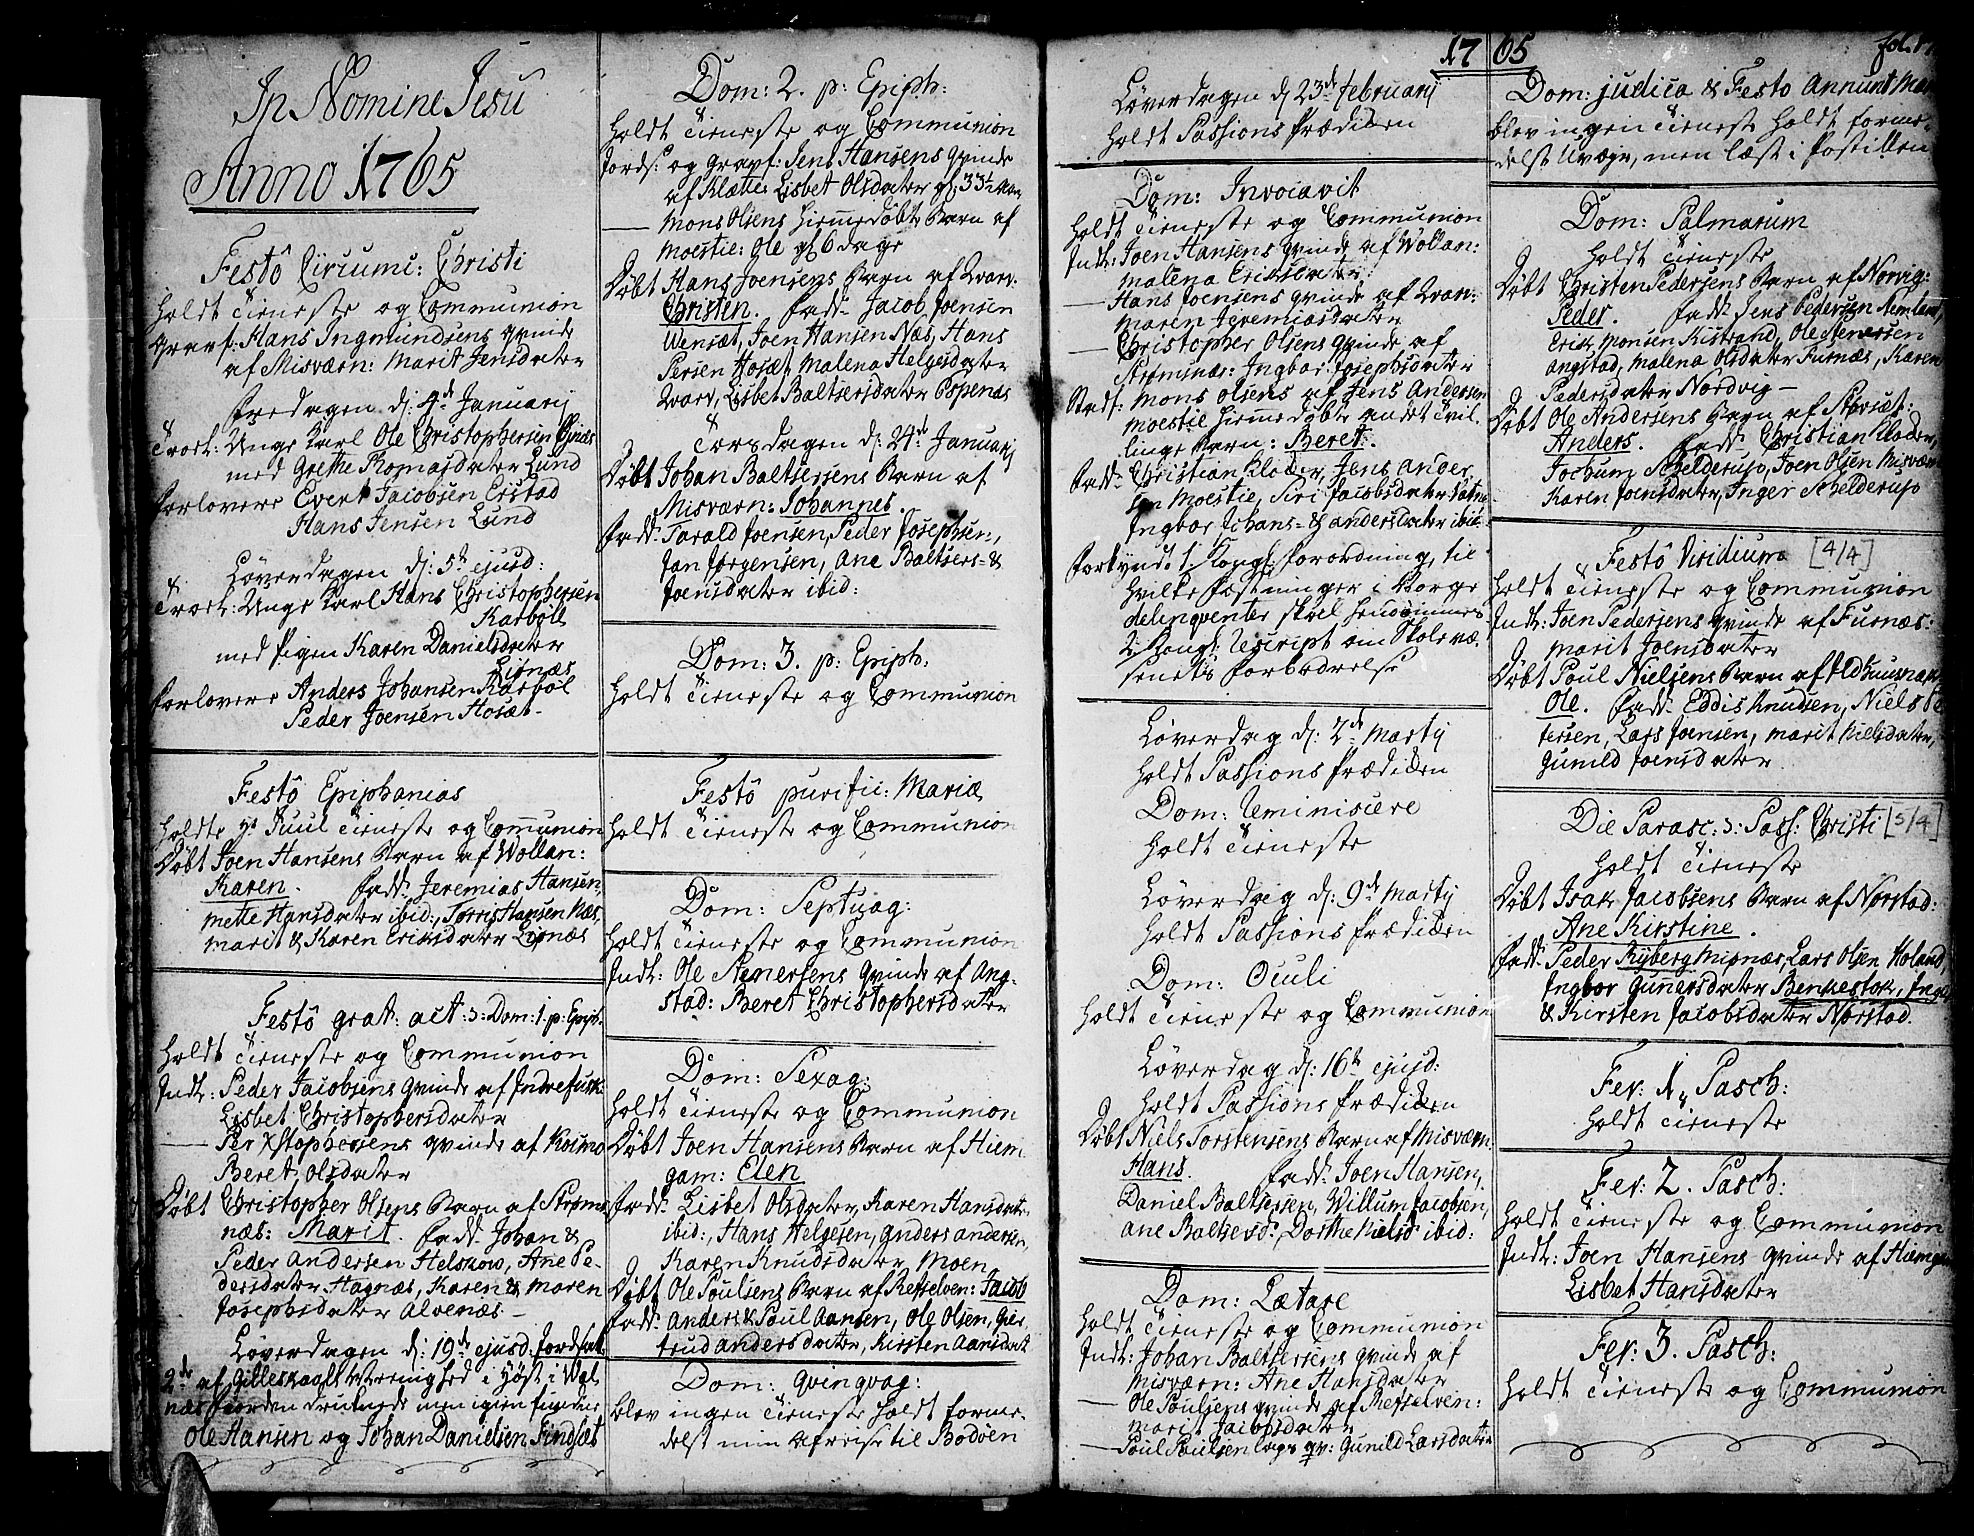 In Nomine Jesu
Anno 1765
Festô Circumc: Christi
Holdt Tieneste og Communion
Gravf: Hans Ingmundsens Qvinde
af Misværn: Marit Jensdater
Fredagen d: 4de Januarij
Troel: Unge Karl Ole Christophersen
med Grethe Thomasdater Lund
Forlovere Evert Jacobsen Erstad
Hans Jensen Lund
Løverdagen d: 5te ejusd:
Troel: Unge Karl Hans Christophersen
Karbøll
med Pigen Karen Danielsdater
Liønæs
Forlovere Anders Johansen Karbøl
Peder Joensen Hosæt
Festô Epiphanias
Holdte Juul Tieneste og Communion
Døbt Joen Hansens Barn af Wollan:
Karen. Fadd: Jeremias Hansen,
Mette Hansdater ibid:, Torris Hansen Næs,
Marit & Karen Eriksdater Liønæs
Festô grat: act: ɔ: Dom: 1. p: Epiph:
Holdt Tieneste og Communion
Indl: Peder Jacobsens Qvinde af Indrefusk
Lisbet Christophersdater
— Per Xstophersens Qvinde af Koimo
Beret Olsdater
Døbt Christopher Olsens Barn af Strøms
næs: Marit. Fadd: Johan &
Peder Andersen Helskow, Ane Pe-
dersdater Hagnæs, Karen & Maren
Josephsdater Alvenæs —
Løverdagen d: 19de ejusd: Jordfæst
2de af Gilleskaals Menighed i Høst i Wal
næsfiorden druknede men igien fundne
Ole Hansen og Johan Danielsen Findsæt
Dom: 2. p: Epiph:
Holdt Tieneste og Communion
Jords: og Gravf: Jens Hansens Qvinde
af Klætte: Lisbet Olsdater gl: 33½ Aar
— Mons Olsens Hiemmedøbte Barn af
Moestie: Ole gl: 6 dage
Døbt Hans Joensens Barn af Qvarv:
Christen. Fadd: Jacob Joensen
Wensæt, Joen Hansen Næs, Hans
Persen Hosæt, Malena Helgesdater
Qvarv, Lisbet Baltsersdater Espenæs
Torsdagen d: 24de Januarij
Døbt Johan Baltsersens Barn af
Misværn: Johannes.
Fadd: Tarald Joensen, Peder Josephsen,
Jan Jørgensen, Ane Baltsers- &
Joensdater ibid:
Dom: 3. p: Epiph:
Holdt Tieneste og Communion
Festô purific: Mariæ
Holdt Tieneste og Communion
Dom: Septuag:
Holdt Tieneste og Communion
Indl: Ole Stenersens Qvinde af Ang-
stad: Beret Christophersdater
Dom: Sexag:
Holdt Tieneste og Communion
Døbt Joen Hansens Barn af Hiem
gam: Elen
Fadd: Lisbet Olsdater, Karen Hansdater
ibid:, Hans Helgesen, Anders Andersen,
Karen Knudsdater Moen
Døbt Ole Poulsens Barn af Refselven: Jacob
Fadd: Anders & Poul Aansen, Ole Olsen, Gier
trud Andersdater, Kirsten Aansdat
Dom: Qvinqvag:
Blev ingen Tieneste Holdt forme-
delst min Afreise til Bodøen
1765
fol:
Løverdagen d: 23de Februarij
Holdt Passions Prædiken
Dom: Invocavit
Holdt Tieneste og Communion
Indl: Joen Hansens Qvinde af Wollan:
Malena Eriksdater
— Hans Joensens Qvinde af Qvarv:
Maren Jeremiasdater
— Christopher Olsens Qvinde af
Strømnæs: Ingbor Josephsdater
Stadf: Mons Olsens af Jens Andersen
Moestie Hiemme døbte andet Tvil-
linge Barn: Beret.
Fadd: Christian Kloder, Jens Ander
sen Moestie, Siri Jacobsdater
Ingbor Johans- & Andersdater ibid:
Forkyndt 1. Kongl: Forordning, til
Hvilke Fæstninger i Norge
delinqventer skal Hendømmes
2. Kongl: Rescript om Skolevæ-
senets Forbedrelse
Løverdag d: 2de Martij
Holdt Passions Prædiken
Dom: Reminiscere
Holdt Tieneste
Løverdag d: 9de Martij
Holdt Passions Prædiken
Dom: Oculi
Holdt Tieneste og Communion
Løverdag d: 16te ejusd:
Holdt Passions Prædiken
Døbt Niels Torstensens Barn af Misværn:
Hans. Fadd: Joen Hansen,
Daniel Baltsersen, Willum Jacobsen,
Ane Baltsersd:, Dorthe Nielsd ibid:
Dom: Lætare
Holdt Tieneste og Communion
Indl: Johan Baltsersens Qvinde af
Misværn: Ane Hansdater
— Ole Poulsens Qvinde af Refselven:
Marit Jacobsdater
— Poul Poulsen Qv: Gunild Larsdater
Dom: Judica & Festo Annunt Mar
blev ingen Tieneste Holdt forme-
delst Uveje, men læst i Postillen
Dom: Palmarum
Holdt Tieneste
Døbt Christen Pedersens Barn af Norvig:
Peder. Fadd: Jens Pedersen Nemland,
Erik Monsen Kistrand, Ole Stenersen
Angstad, Malena Olsdater Furnæs, Karen
Pedersdater Nordvig —
Døbt Ole Andersens Barn af Storsæt:
Anders. Fadd: Christian Kloder,
Jochum Schelderup, Joen Olsen Misværn
Karen Joensdater, Inger Schelderup
Festô Viridium [4/4]
Holdt Tieneste og Communion
Indl: Joen Pedersens Qvinde af Furnæs:
Marit Joensdater
Døbt Poul Nielsens Barn af Ildhuusnæs
Ole. Fadd: Eddis Knudsen, Niels Pe
tersen, Lars Joensen, Marit Nielsdater,
Gunild Joensdater
Die Parasc: ɔ: Pass: Christi [5/4]
Holdt Tieneste
Døbt Isak Jacobsens Barn af Norstad:
Ane Kirstine.
Fadd: Peder Ryberg Misnæs, Lars Olsen Holand,
Ingbor Gunersdater Benkestok, Inge
& Kirsten Jacobsdater Norstad.
Fer: 1. Pasch:
Holdt Tieneste
Fer: 2. Pasch:
Holdt Tieneste og Communion
Indl: Joen Hansens Qvinde af Hiemgam
Lisbet Hansdater
Fer: 3. Pasch:
Holdt Tieneste og Communion